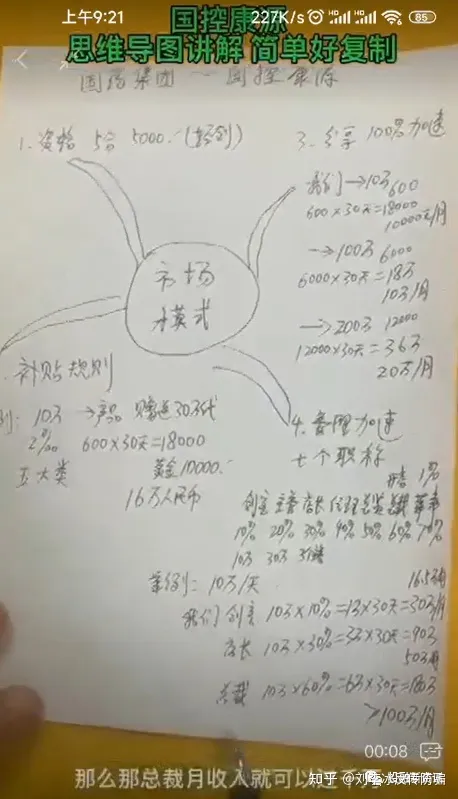 上午9:21
227K/s
85
国控康源
思维导图讲解 简单好复制
国药集团 — 国控康源
1. 资格 5台 5000.
3. 分享 100% 加速
我们→10万 600
600×30天=18000
10000元/月
→100万 6000
6000×30天=18万
10万/月
→200万 12000
12000×30天=36万
20万/月
市场
模式
补贴规则
例: 10万
2‰ 600×30天=18000
五大类 黄金10000.
16万人民币
4. 管理加速
七个职称
1%
10% 20% 30% 40% 50% 60% 70%
10万 30万
案例: 10万/天
16.5万/月
我们 创主 10万×10%=1万×30天=30万/月
店长 10万×30%=3万×30天=90万
50万/月
总裁 10万×60%=6万×30天=180万
>100万/月
00:08
那么那总裁月收入就可以过千万